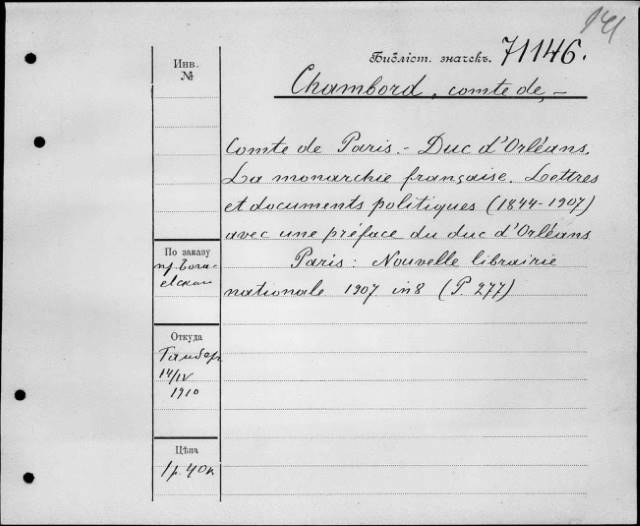 141
Библіот. значекъ. 71146.
Инв.
№
Chambord, comte de, –
Comte de Paris. – Duc d'Orléans.
La monarchie française. Lettres
et documents politiques (1844–1907)
avec une préface du duc d'Orléans
Paris: Nouvelle librairie
nationale 1907 in 8 (P. 277)
По заказу
пр.
Откуда
14/IV
1910
Цѣна
1 р. 40 к